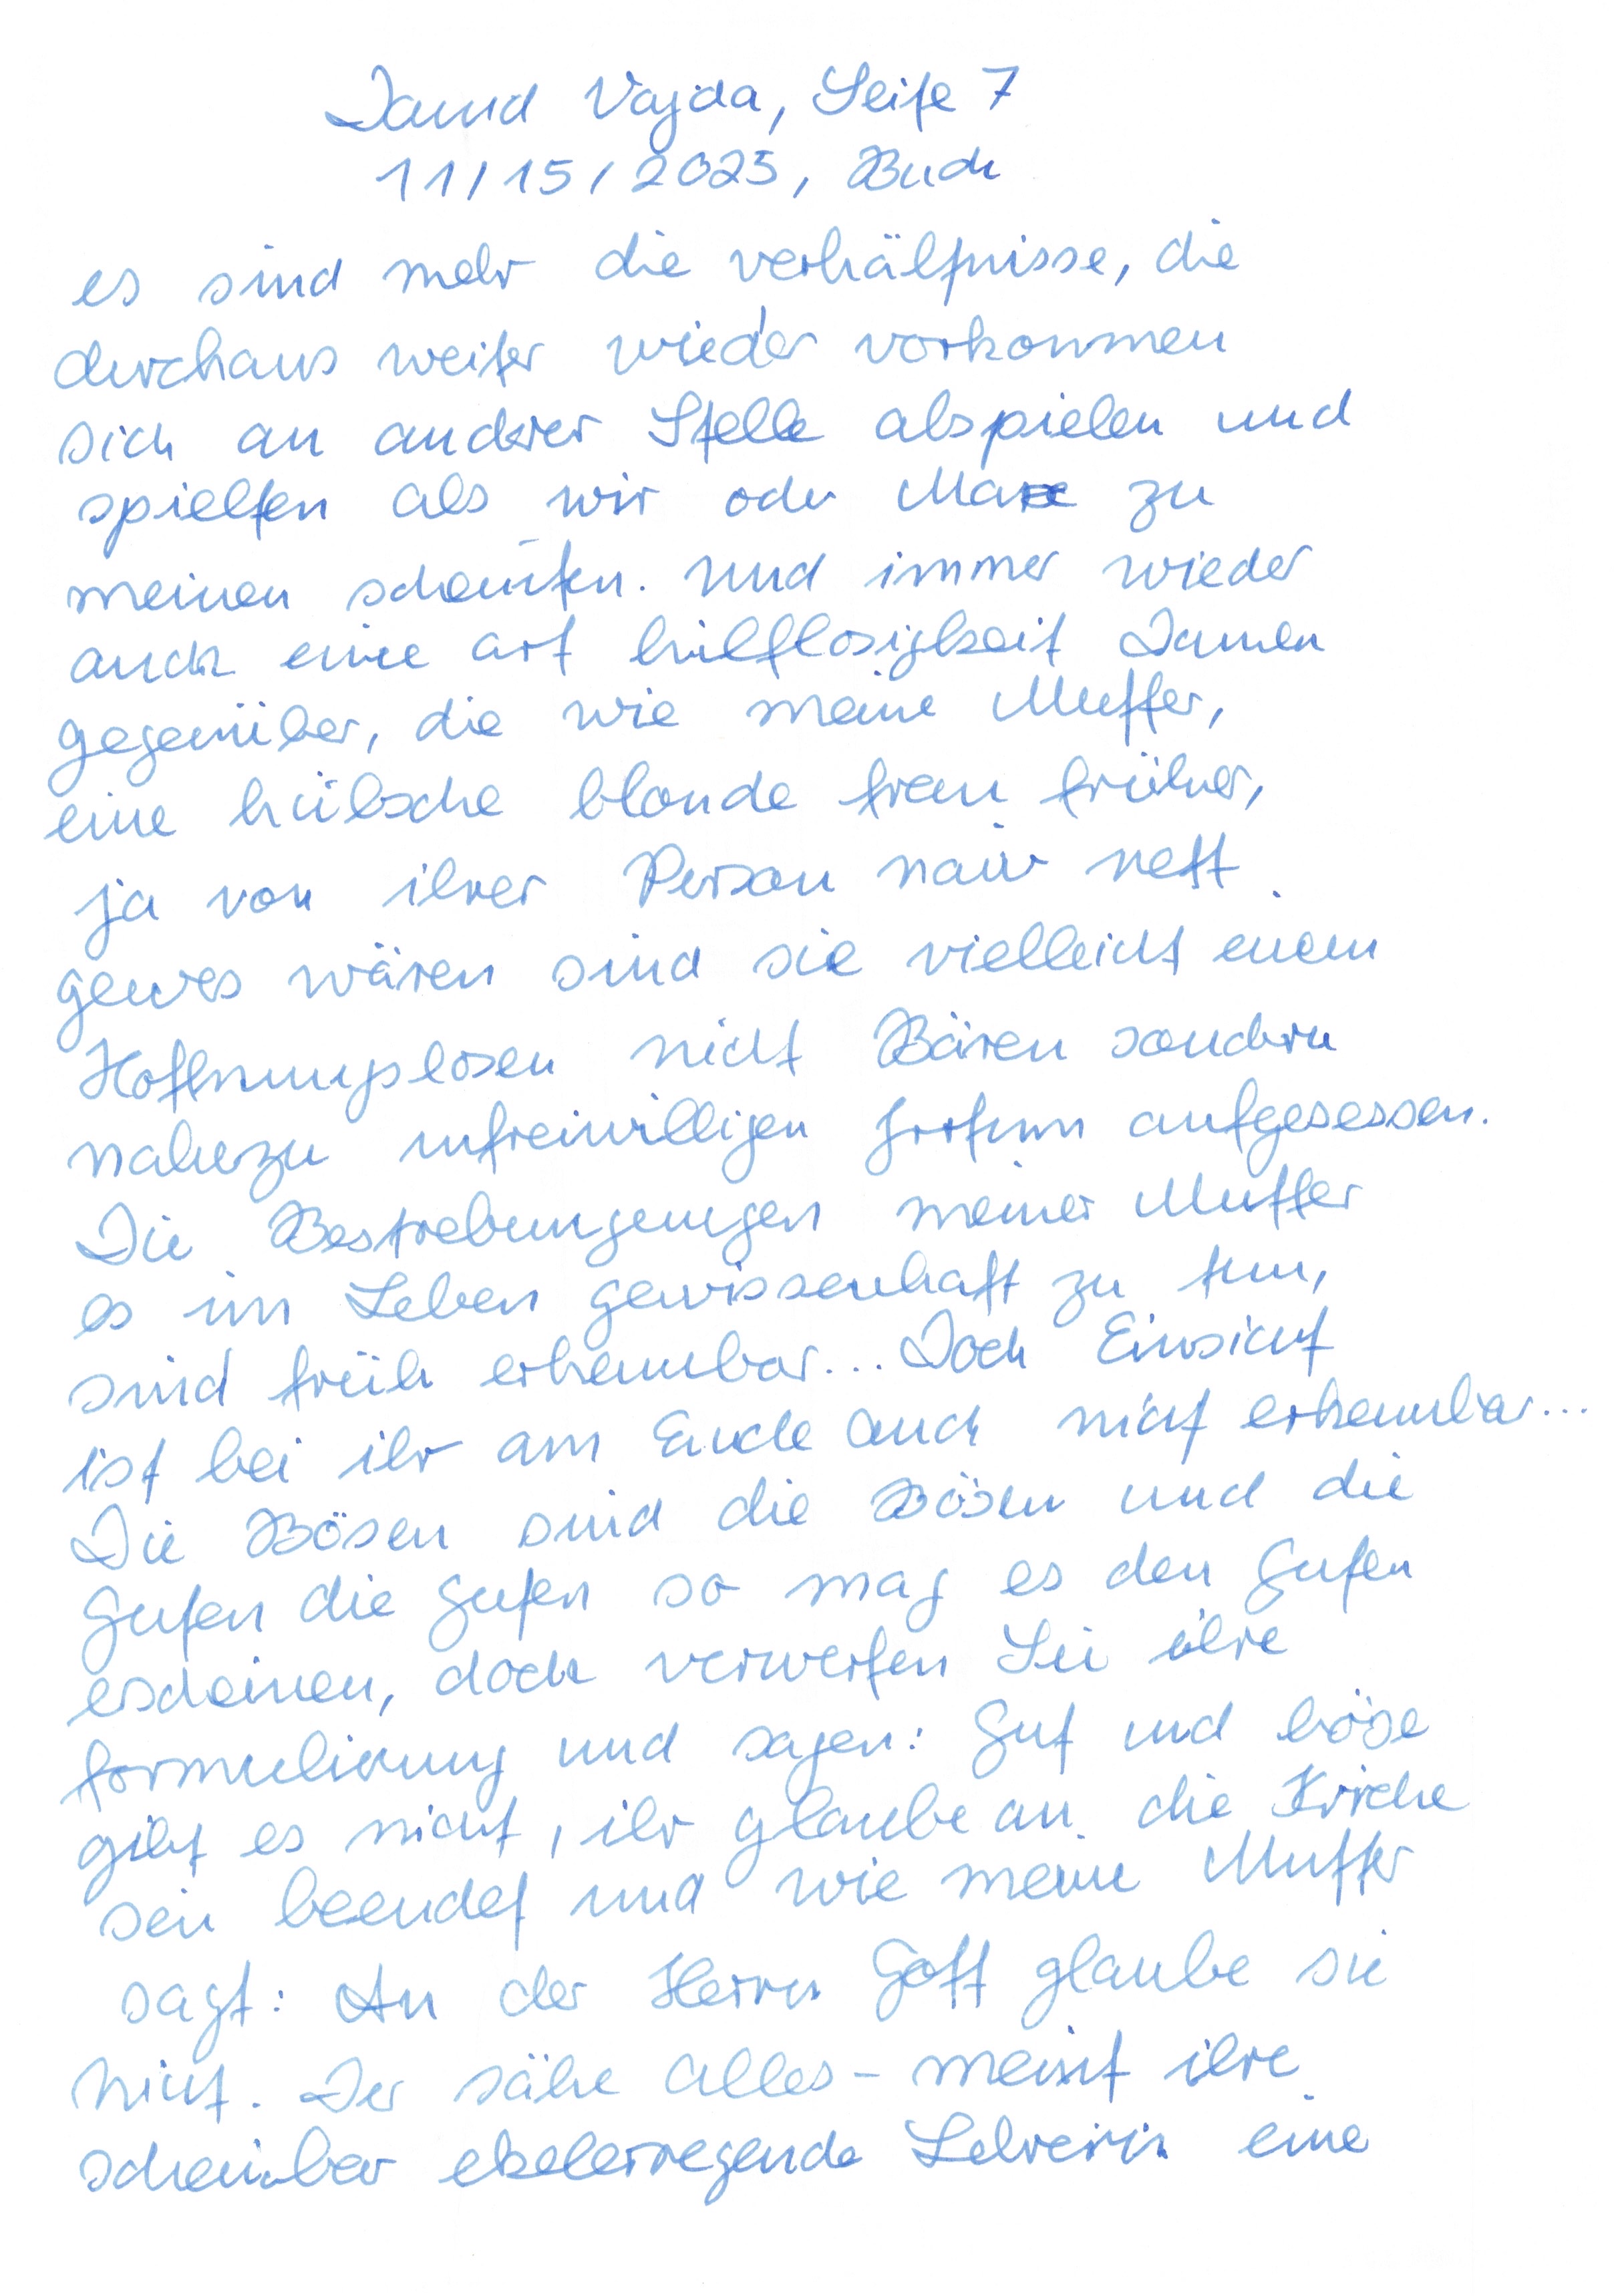 David Vajda, Seite 7
11/15/2025, Buch
es sind mehr die verhältnisse, die
durchaus weiter wieder vorkommen
sich an andrer Stelle abspielen und
spielten als wir oder Max zu
meinen scheinten. Und immer wieder
auch eine art hilflosigkeit Damen
gegenüber, die wie meine Mutter,
eine hübsche blonde frau früher,
ja von ihrer Person naiv nett
gewes wären sind sie vielleicht einem
Hoffnungslosen nicht Bären sondern
nahezu unfreiwilligen aufgesessen.
Die Bestrebungengen meiner Mutter
es im Leben gewissenhaft zu tun,
sind früh erkennbar... Doch Einsicht
ist bei ihr am Ende auch nicht erkennbar...
Die Bösen sind die Bösen und die
Guten die Guten so mag es den Guten
escheinen, doch verwerfen Sie ihre
formulierung und sagen: Gut und böse
gibt es nicht, ihr glaube an die Kriche
sei beendet und wie meine Mutter
sagt: An der Herrn Gott glaube sie
nicht. Der sähe alles - meint ihre
scheinbar ekelerregende Lehrerin eine